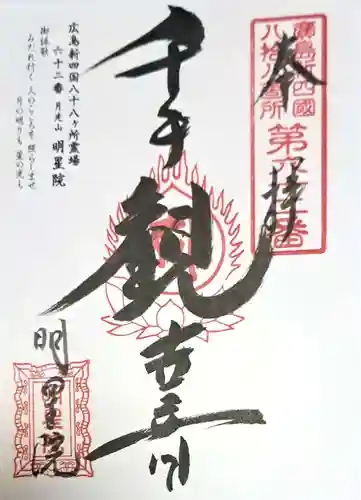 廣島新四國
八拾八箇所
第六十二番
奉拝
千手
観
明星院
広島新四国八十八ヶ所霊場
六十二番 月光山 明星院
御詠歌
みだれ行く 人のこころを 照らしませ
月の明りも 星の光も